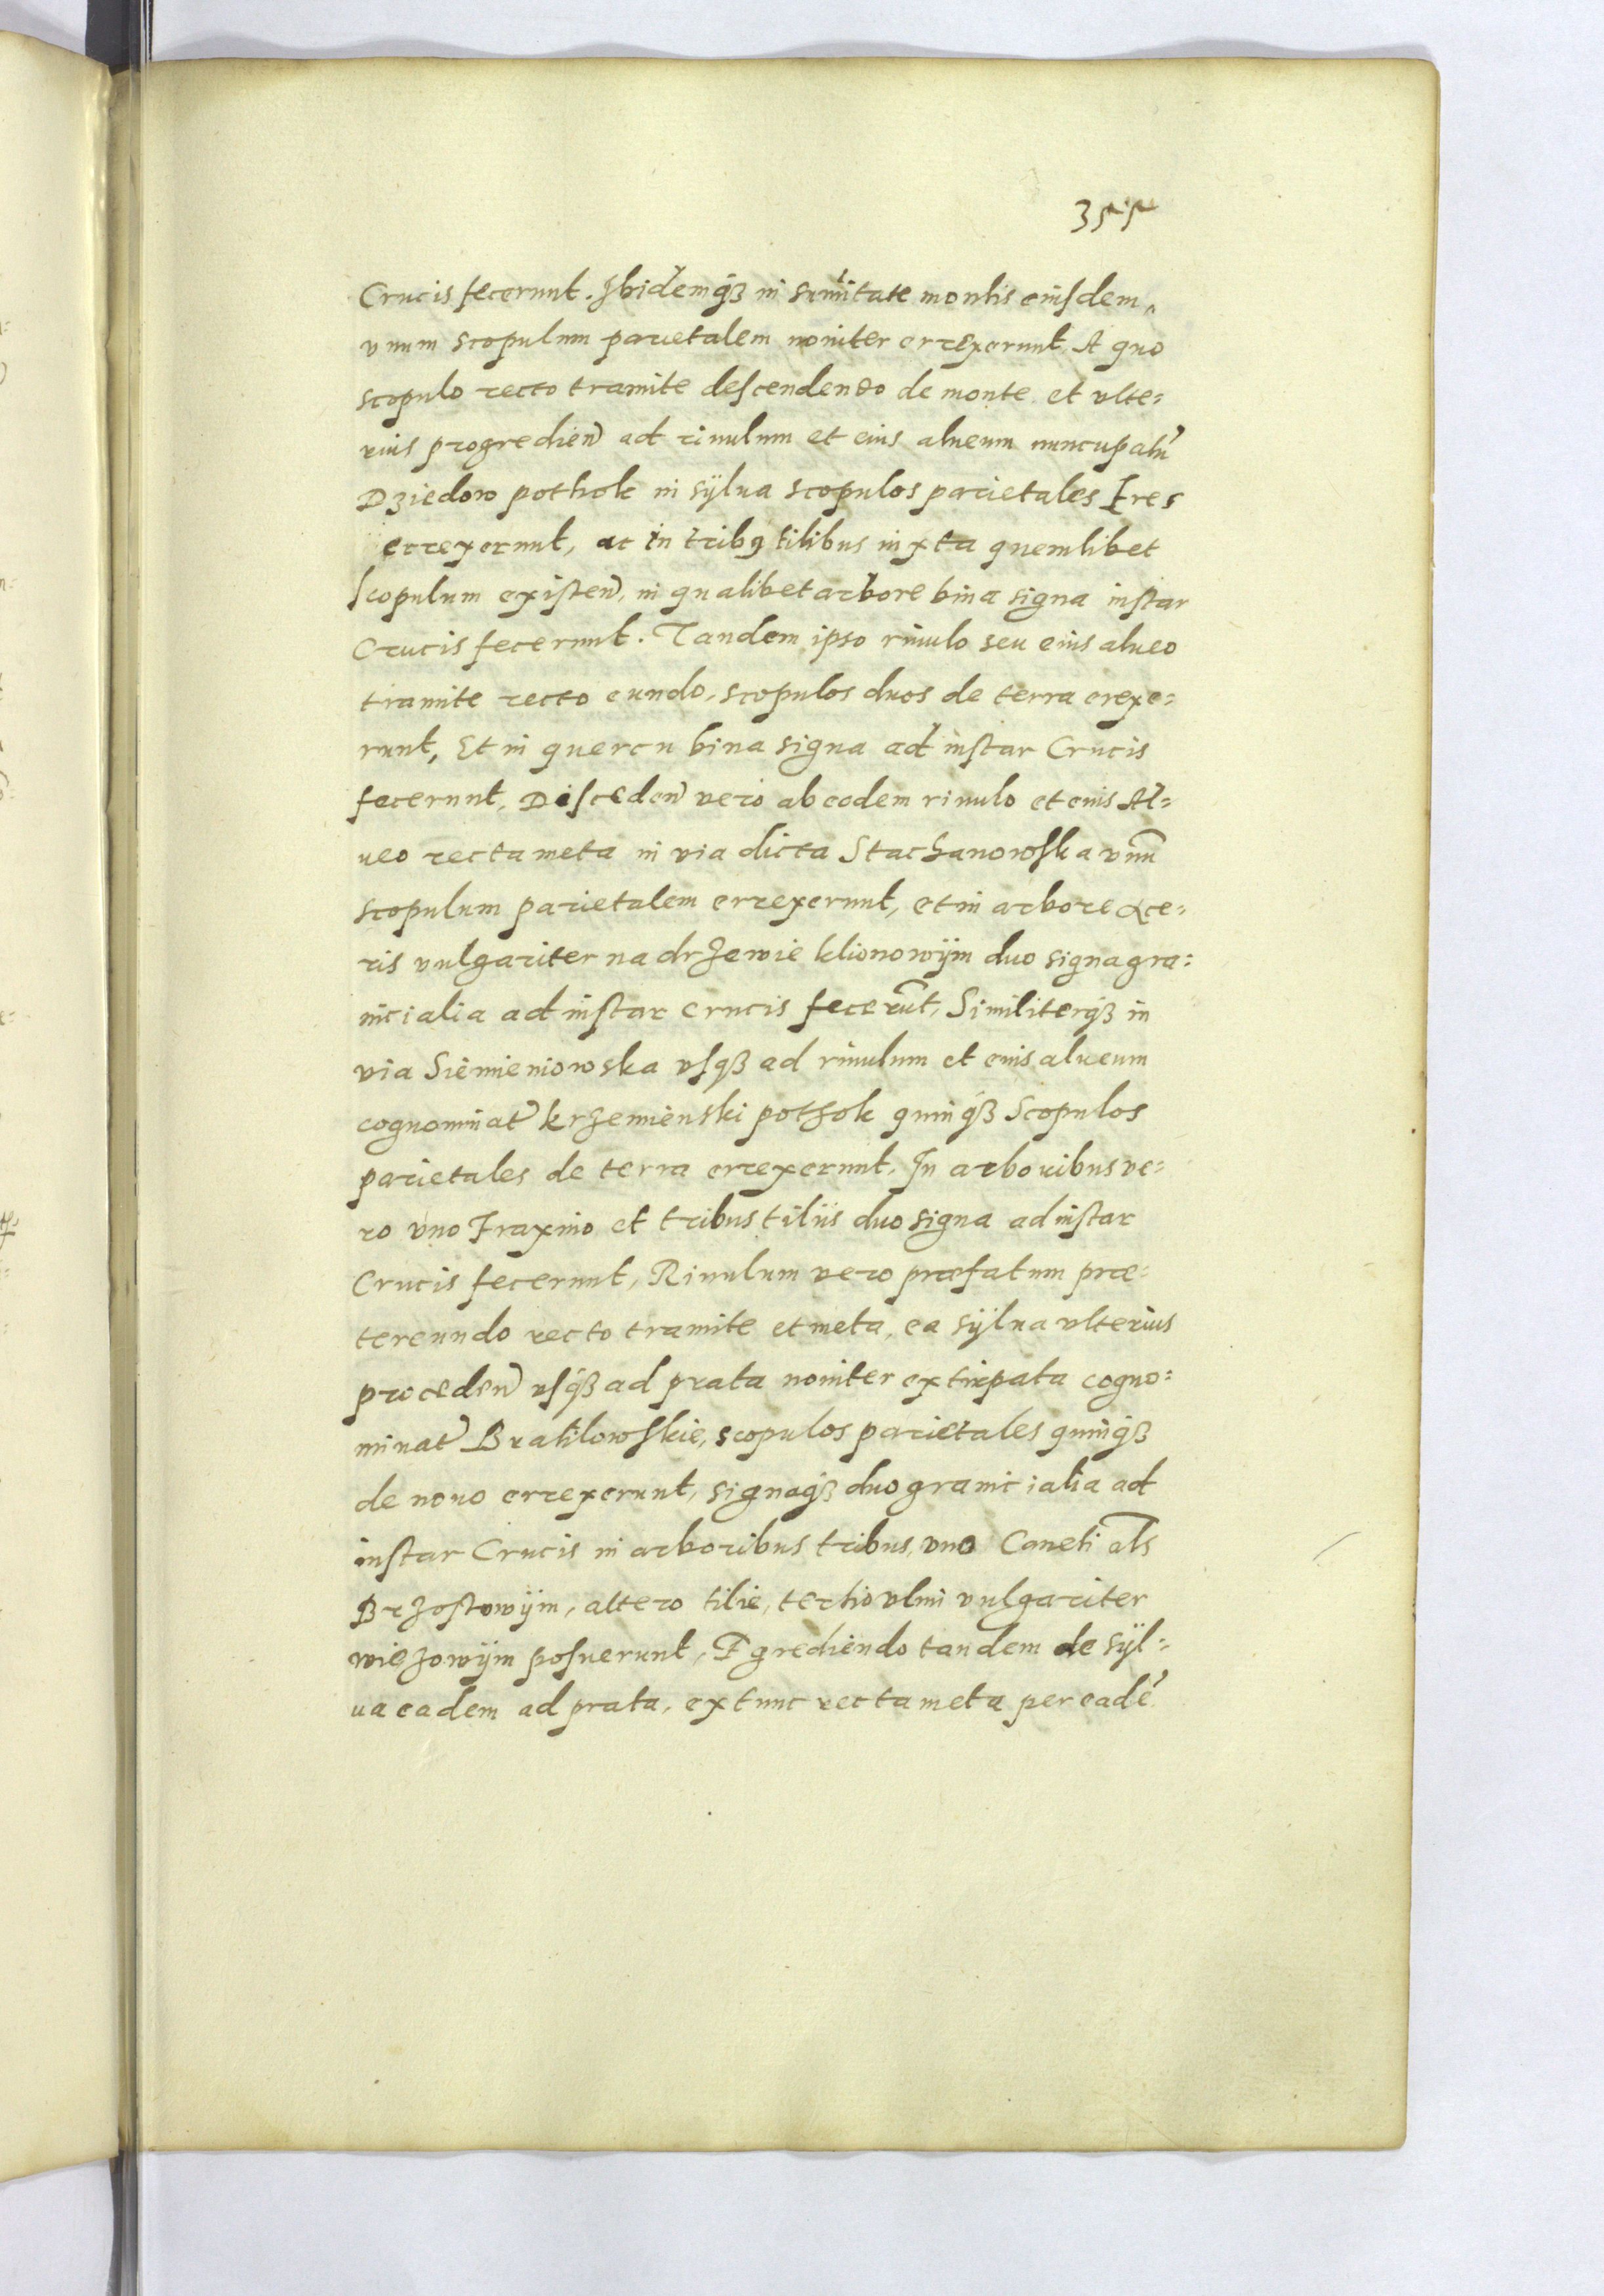 355
Crucis fecerunt. Ibidemqȝ in sumitate montis eiusdem,
vnum scopulum parietalem noniter errexerunt A quo
scopulo recto tramite descendendo de monte et vlte=
rius progredien̄ ad riuulum et eius alueum nuncupatū
Dziedow pothok in sÿlua scopulos parietales tres
errexerunt, ac in tribꝯ tilibus iuxta quemlibet
scopulum existen̄, in qualibet arbore bina signa instar
Crucis fecerunt. Tandem ipso riuulo seu eius alueo
tramite recto eundo, scopulos duos de terra erexe=
runt, Et in quercu bina signa ad instar Crucis
fecerunt, Disceden̄ vero ab eodem riuulo et euis Al=
ueo recta meta in via dicta Stachanowska vnū
scopulum parietalem errexerunt, et in arbore Ace=
ris vulgariter na drzewie klionowÿm duo signa gra=
nicialia ad instar crucis fecerūt, Similiterqȝ in
via Siemieniowska vsqȝ ad riuulum et euis alueum
cognominat̄ krzemienski pothok quinqȝ Scopulos
parietales de terra errexerunt, In arboribus ve=
ro vno Fraxino et tribus tiliis duo signa ad instar
Crucis fecerunt, Riuulum vero præfatum præ=
tereundo recto tramite et meta, ea sÿlua vlterius
proceden̄ vsqȝ ad prata noniter extirpata cogno=
minat̄ Bratilowskie, scopulos parietales quinqȝ
de nouo errexerunt, signaqȝ duo granicialia ad
instar Crucis in arboribus tribus, vno Caneti al̄s
Brzostowÿm, altero tilie, tertio vlmi vulgariter
wiezowÿm posuerunt, Egrediendo tandem de sÿl=
ua eadem ad prata, extunc recta meta per eadē